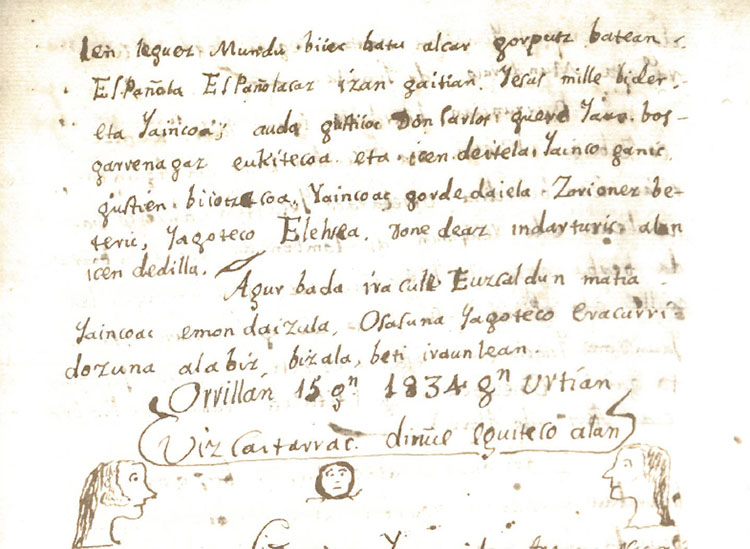 len leguez Mundu biiec batu alcar gorputz batean
Española Españolacaz izan gaitian. Jesus mille bider,
eta Yaincoa; auda gusticoc Don Carlos quere Jaun bos-
garrenagaz eukitecoa. eta icen deitela, Yainco ganic,
gustien biiotzecoa, Yaincoac gorde daiela. Zorionez be-
teric, Jagoteco Elehsea. done deaz indarturic alan
icen dedilla.
Agur bada iracull Euzcaldun matia
Yaincoac emon daizula, Osasuna Jagoteco Eracurri
dozuna ala biz, bizala, beti iraunlean.
Orvillan 15 gn 1834 gn Urtian
Vizcaitarrac dinue eguiteco alan